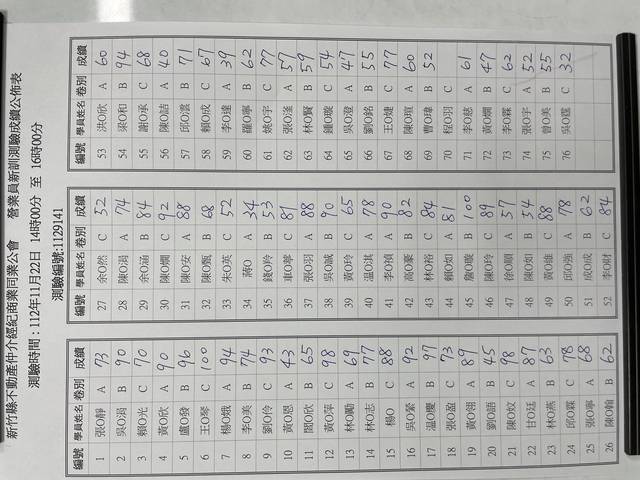 新竹縣不動產仲介經紀商業同業公會 營業員新訓測驗成績公佈表
測驗時間：112年11月22日 14時00分 至 16時00分
測驗編號:1129141
編號 學員姓名 卷別 成績
1 張O靜 A 73
2 吳O潟 B 90
3 賴O光 C 70
4 黃O欣 A 90
5 盧O發 B 96
6 王O琴 C 100
7 楊O娥 A 94
8 李O美 B 74
9 劉O伶 C 93
10 黃O恩 A 43
11 閻O欣 B 65
12 黃O萍 C 98
13 林O勵 A 69
14 林O志 B 77
15 楊O C 88
16 吳O縈 A 92
17 溫O慶 B 97
18 張O盈 C 73
19 黃O翎 A 89
20 劉O語 B 45
21 陳O妏 C 98
22 甘O廷 A 87
23 林O燕 B 63
24 邱O霖 C 78
25 張O寧 A 68
26 陳O翰 B 62
編號 學員姓名 卷別 成績
27 余O然 C 52
28 陳O潟 A 74
29 余O涵 B 84
30 陳O嫻 C 92
31 陳O安 A 88
32 陳O甄 B 68
33 朱O英 C 52
34 蔣O A 34
35 錢O羚 B 53
36 車O寧 C 81
37 張O羽 A 88
38 吳O誠 B 90
39 黃O玲 C 65
40 溫O淇 A 78
41 李O楨 A 90
42 高O豪 B 82
43 林O裕 C 84
44 賴O如 A 81
45 詹O璇 B 100
46 陳O玲 C 89
47 徐O順 A 57
48 陳O如 B 54
49 黃O維 C 88
50 邱O強 A 78
51 成O成 B 62
52 李O財 C 84
編號 學員姓名 卷別 成績
53 洪O欣 A 60
54 梁O和 B 94
55 謝O承 C 68
56 陳O喆 A 40
57 邱O澐 B 71
58 賴O成 C 67
59 李O達 A 39
60 羅O寧 B 62
61 姚O宇 C 77
62 張O淦 A 57
63 林O賢 B 59
64 鍾O璇 C 54
65 吳O澄 A 47
66 劉O銘 B 55
67 王O婕 C 77
68 陳O瑄 A 60
69 曹O瑋 B 52
70 程O羽 C
71 李O慈 A 61
72 黃O嫻 B 47
73 李O霖 C 62
74 張O宇 A 52
75 曾O美 B 55
76 吳O霆 C 32